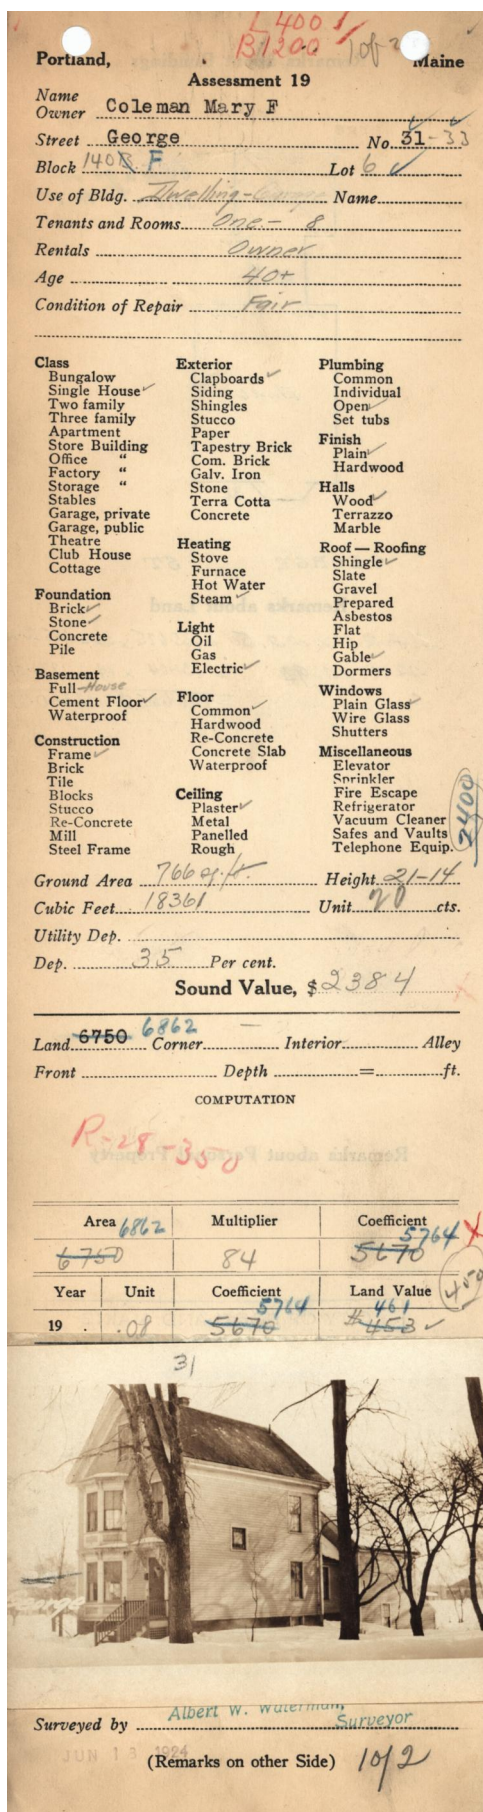 L 400
B 1200 1 of 2
Portland, Maine
Assessment 19
Name
Owner Coleman Mary F
Street George No. 31-33
Block 140B F Lot 6
Use of Bldg. Dwelling-Garage Name
Tenants and Rooms One - 8
Rentals Owner
Age 40+
Condition of Repair Fair
Class
Bungalow
Single House
Two family
Three family
Apartment
Store Building
Office "
Factory "
Storage "
Stables
Garage, private
Garage, public
Theatre
Club House
Cottage
Foundation
Brick
Stone
Concrete
Pile
Basement
Full-House
Cement Floor
Waterproof
Construction
Frame
Brick
Tile
Blocks
Stucco
Re-Concrete
Mill
Steel Frame
Exterior
Clapboards
Siding
Shingles
Stucco
Paper
Tapestry Brick
Com. Brick
Galv. Iron
Stone
Terra Cotta
Concrete
Heating
Stove
Furnace
Hot Water
Steam
Light
Oil
Gas
Electric
Floor
Common
Hardwood
Re-Concrete
Concrete Slab
Waterproof
Ceiling
Plaster
Metal
Panelled
Rough
Plumbing
Common
Individual
Open
Set tubs
Finish
Plain
Hardwood
Halls
Wood
Terrazzo
Marble
Roof — Roofing
Shingle
Slate
Gravel
Prepared
Asbestos
Flat
Hip
Gable
Dormers
Windows
Plain Glass
Wire Glass
Shutters
Miscellaneous
Elevator
Sprinkler
Fire Escape
Refrigerator
Vacuum Cleaner
Safes and Vaults
Telephone Equip.
2400
Ground Area 766 sq. ft. Height 21-14
Cubic Feet 18361 Unit 20 cts.
Utility Dep.
Dep. 35 Per cent.
Sound Value, $ 2384
Land 6750 6862 Corner — Interior Alley
Front Depth = ft.
COMPUTATION
R-28-350
Area 6862 Multiplier Coefficient 5764
6750 84 5670
450
Year Unit Coefficient Land Value
5764 461
19 . .08 5670 $453
31
George
Albert W. Waterman,
Surveyed by Surveyor
JUN 13 1924
(Remarks on other Side) 1 of 2